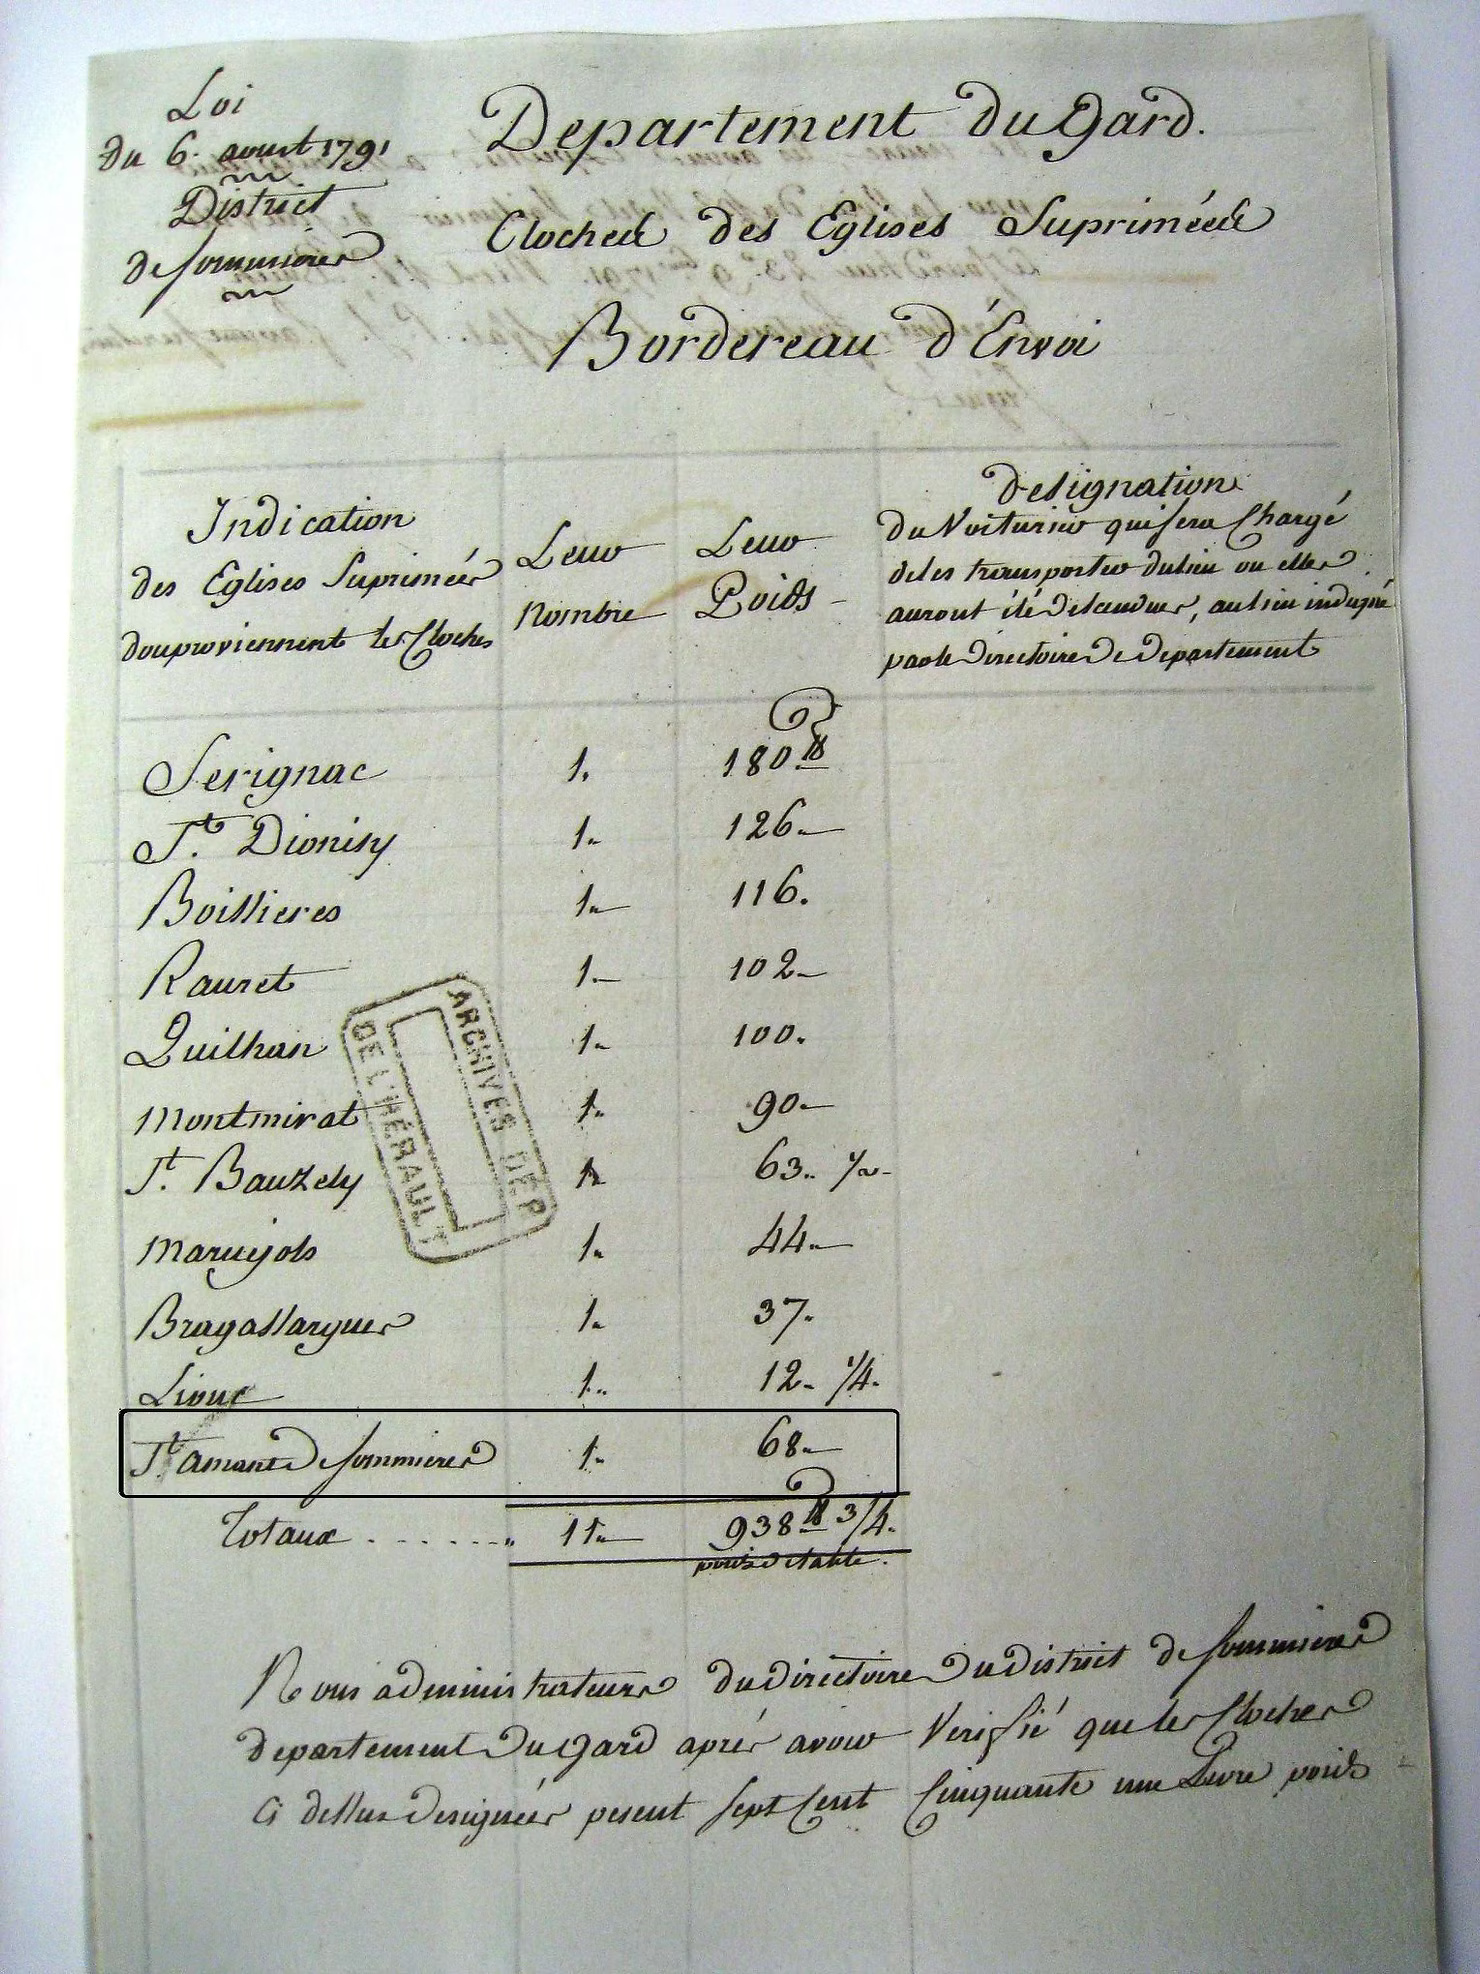 Loi
du 6. aoust 1791
District
de Sommières
Departement du Gard.
Cloches des Eglises Supriméés
Bordereau d'Envoi
Indication
des Eglises Supriméés
d'ou proviennent les Cloches
Leur
Nombre
Leur
Poids
designation
du Voiturier qui sera Chargé
de les transporter du lieu ou elles
auront été descendues, au lieu indiqué
par le directoire de departement
Serignac 1. 180 lb
St. Dionisy 1. 126.
Boissieres 1. 116.
Rauret 1. 102
Quilhan 1. 100.
Montmirat 1. 90
St. Bauzely 1. 63. 1/2
Maruejols 1. 44.
Bragassargues 1. 37.
Liouc 1. 12. 1/4.
St amant de Sommieres 1. 68.
Totaux . . . . . . . 11. 938 lb 3/4.
poids de table.
ARCHIVES DEP
DE L'HÉRAULT
Nous administrateurs du directoire du district de Sommieres
departement du Gard aprés avoir Verifié que les Cloches
Ci dessus designéés pesent Sept Cent Cinquante une Livre poids